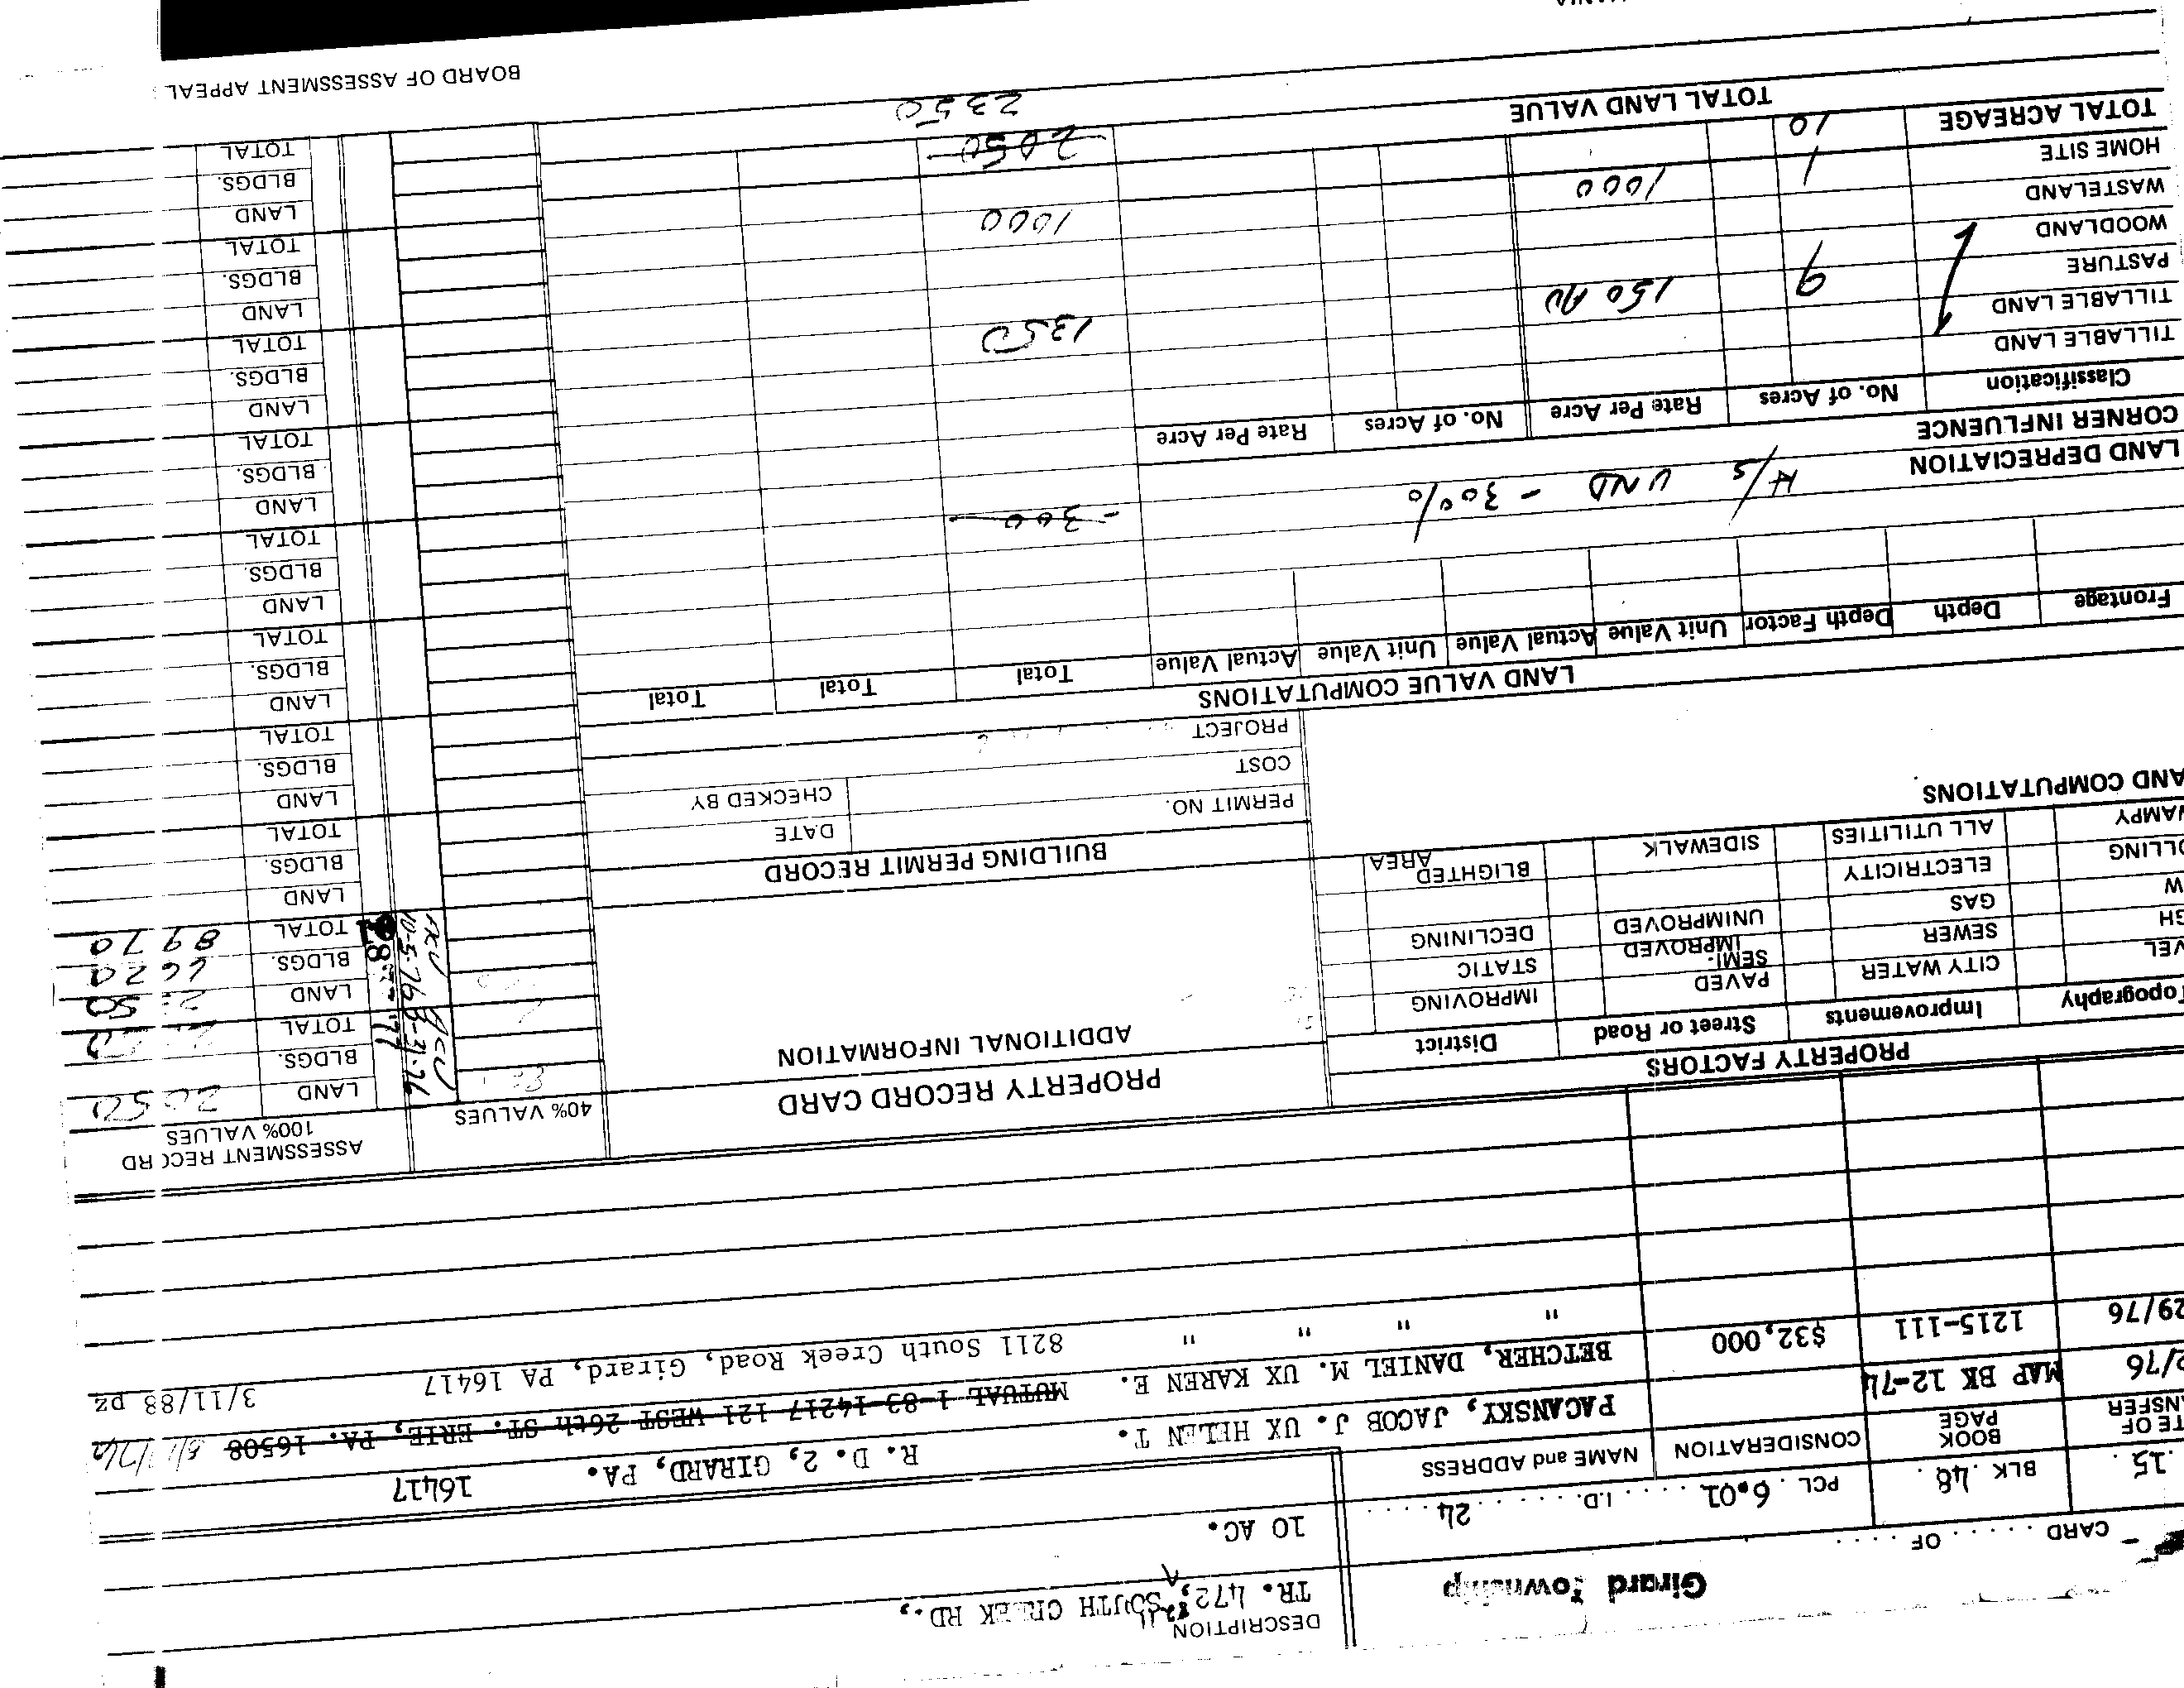 Girard Township
DESCRIPTION
TR. 472, 8211 SOUTH CREEK RD.,
CARD ..... OF ....
10 AC.
15 . BLK . 48 . PCL . 6.01 ..... I.D. ..... 24 ....
BOOK PAGE CONSIDERATION NAME and ADDRESS
R. D. 2, GIRARD, PA. 16417
2/76 MAP BK 12-74 PACANSKY, JACOB J. UX HELEN T.
MUTUAL 1-83-14217 121 WEST 26th ST. ERIE, PA. 16508
29/76 1215-111 $32,000 BETCHER, DANIEL M. UX KAREN E.
8211 South Creek Road, Girard, PA 16417 3/11/88 pz
" " " " "
PROPERTY FACTORS
Topography Improvements Street or Road District
CITY WATER PAVED IMPROVING
SEWER SEMI-IMPROVED STATIC
GAS UNIMPROVED DECLINING
ELECTRICITY BLIGHTED AREA
ALL UTILITIES SIDEWALK
PROPERTY RECORD CARD
ADDITIONAL INFORMATION
BUILDING PERMIT RECORD
PERMIT NO. DATE
COST CHECKED BY
PROJECT
40% VALUES
ASSESSMENT RECORD
100% VALUES
LAND 2050
BLDGS.
TOTAL
LAND
BLDGS. 6620
TOTAL 8970
LAND
BLDGS.
TOTAL
LAND
BLDGS.
TOTAL
LAND
BLDGS.
TOTAL
LAND
BLDGS.
TOTAL
LAND
BLDGS.
TOTAL
LAND
BLDGS.
TOTAL
LAND
BLDGS.
TOTAL
LAND
BLDGS.
TOTAL
LAND COMPUTATIONS
LAND VALUE COMPUTATIONS
Frontage Depth Depth Factor Unit Value Actual Value Unit Value Actual Value Total Total Total
LAND DEPRECIATION H/S UND - 30% -300
CORNER INFLUENCE
Classification No. of Acres Rate Per Acre No. of Acres Rate Per Acre
TILLABLE LAND
TILLABLE LAND 9 150 AV 1350
PASTURE
WOODLAND
WASTELAND
HOME SITE 1 1000 1000
TOTAL ACREAGE 10
TOTAL LAND VALUE 2050
2350
BOARD OF ASSESSMENT APPEAL